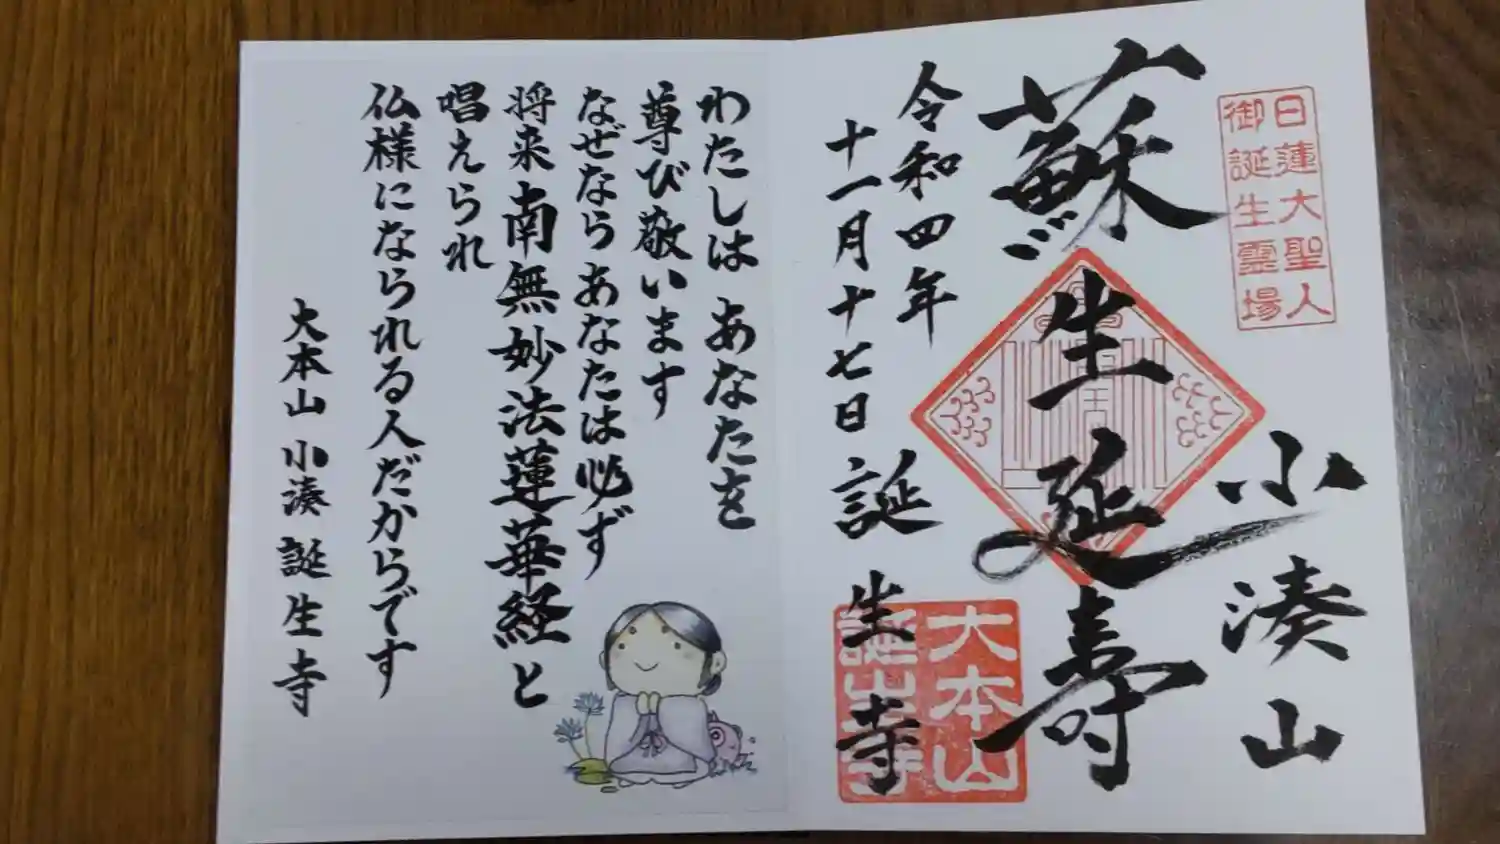 日蓮大聖人
御誕生霊場
小湊山
蘇生延寿
令和四年
十一月十七日
誕生寺
大本山
誕生寺
わたしは あなたを
尊び敬います
なぜなら あなたは必ず
将来 南無妙法蓮華経と
唱えられ
仏様になられる人だからです
大本山 小湊 誕生寺